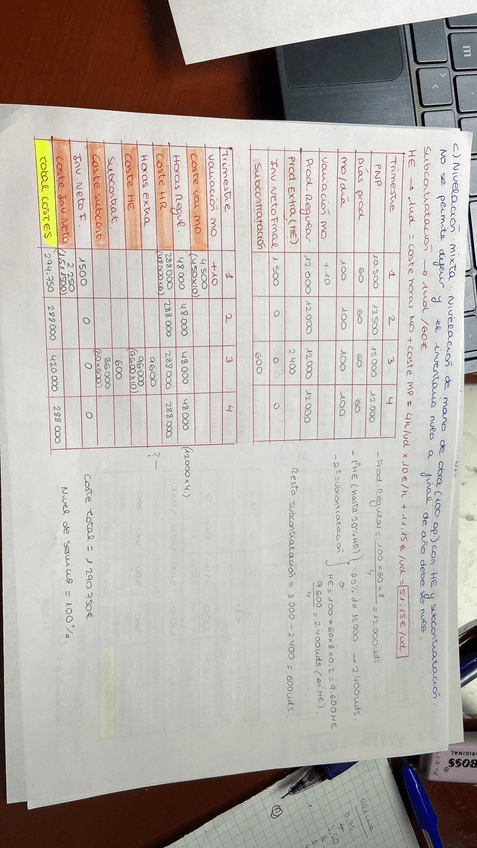 c) Nivelación mixta. Nivelación de mano de obra (100 op) con HE y subcontratación.
No se permite diferir y el inventario nulo a final de año debe ser nulo.
Subcontratación → 1ud / 60€
HE → 1ud = coste hora NO + coste MP = 4h/ud x 10€/h + 11.15€/ud = 51,15€/ud
Trimestre 1 2 3 4
PNP 10.500 13.500 15.000 12.000
Días prod 60 60 60 60
mo/día 100 100 100 100
variación mo +10
Prod Regular 12.000 12.000 12.000 12.000
Prod Extra (HE) 0 0 2.400 0
Inv Neto Final 1.500 0 0 0
Subcontratación 600
- Prod. Regular = 100 x 60 x 8 / 4 = 12.000 uds
- 1º HE (hasta 20% HR) } 20% de 12000 → 2.400 uds
- 2º subcontratación o
HE = 100 x 60 x 8 x 0,2 = 9.600 HE
9.600 / 4 = 2.400 uds (en HE).
Resto subcontratación = 3.000 - 2.400 = 600 uds
Trimestre 1 2 3 4
variación mo +10
Coste var. mo 4.500 (450x10)
Horas Regul. 48.000 48.000 48.000 48.000 (12000 x 4)
Coste HR 288.000 (48.000x6) 288.000 288.000 288.000
Horas extra 9600 ? -
Coste HE 96.000 (9600x10)
Subcontrat 600
Coste subcont. 36.000 (60x600)
Inv Neto F. 1500 0 0 0
Coste Inv Neto 2.250 (1,5x1500)
TOTAL COSTES 294.750 288.000 420.000 288.000
Coste total = 1.290.750€
Nivel de servicio = 100%.
BOSS
ORIGINAL